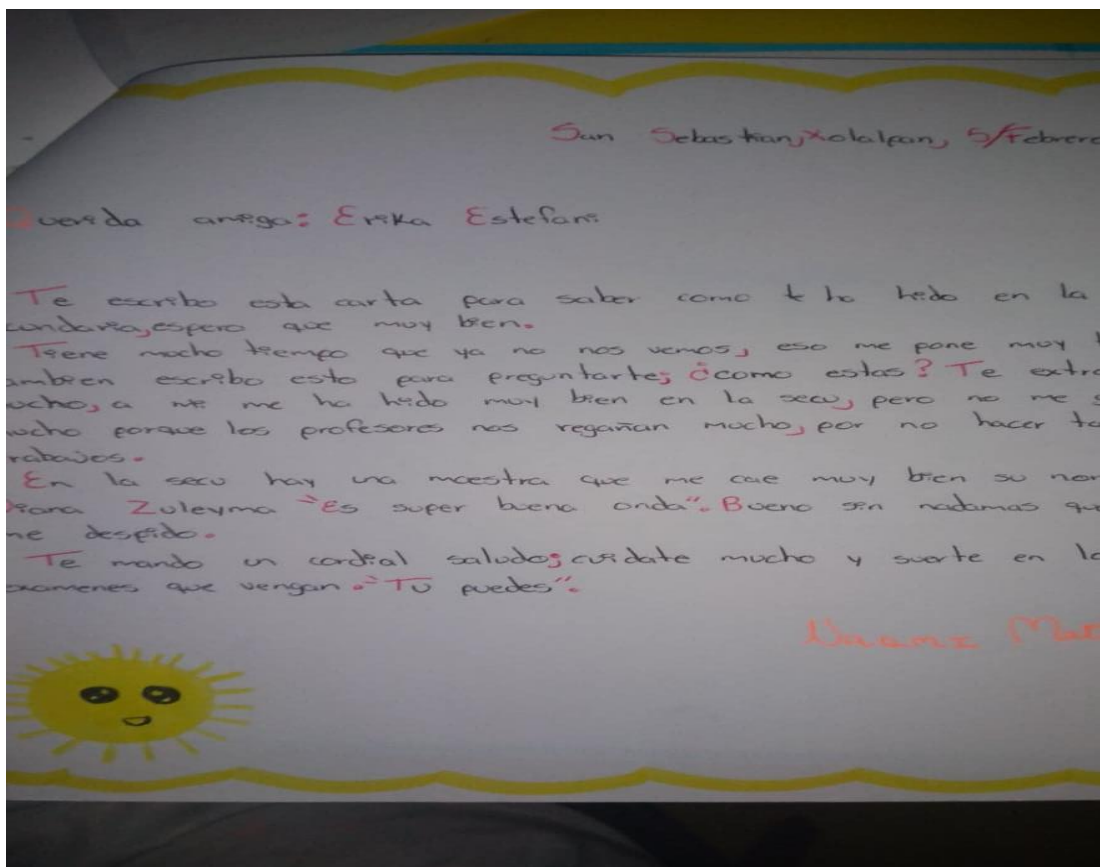 San Sebastian, Xolalpan, 5/Febrero
Querida amiga: Erika Estefani
Te escribo esta carta para saber como te ha hido en la
cundaria, espero que muy bien.
Tiene mucho tiempo que ya no nos vemos, eso me pone muy
ambien escribo esto para preguntarte; ¿como estas? Te extra
ucho, a mi me ha hido muy bien en la secu, pero no me
ucho porque los profesores nos regañan mucho, por no hacer
rabajos.
En la secu hay una maestra que me cae muy bien su nom
Diana Zuleyma "Es super buena onda". Bueno sin nadamas que
me despido.
Te mando un cordial saludo; cuidate mucho y suerte en lo
examenes que vengan. "Tú puedes".